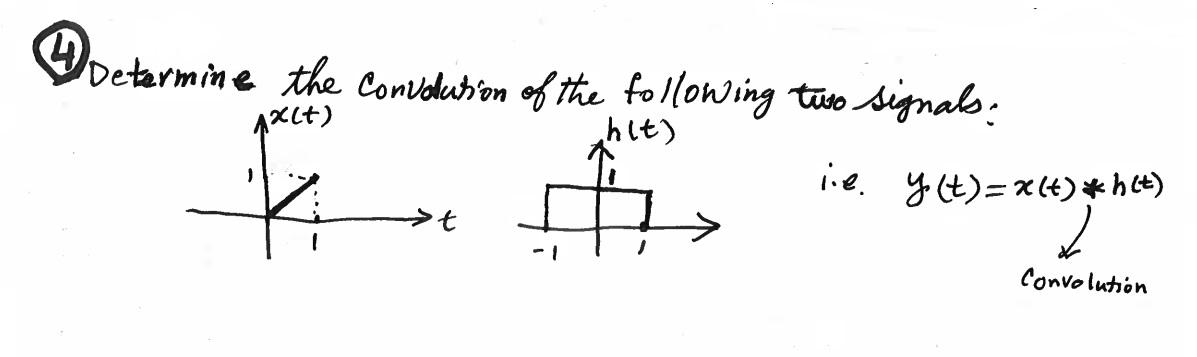 ④ Determine the convolution of the following two signals:
x(t) h(t)
1 1 i.e. y(t) = x(t) * h(t)
t
1 -1 1
Convolution